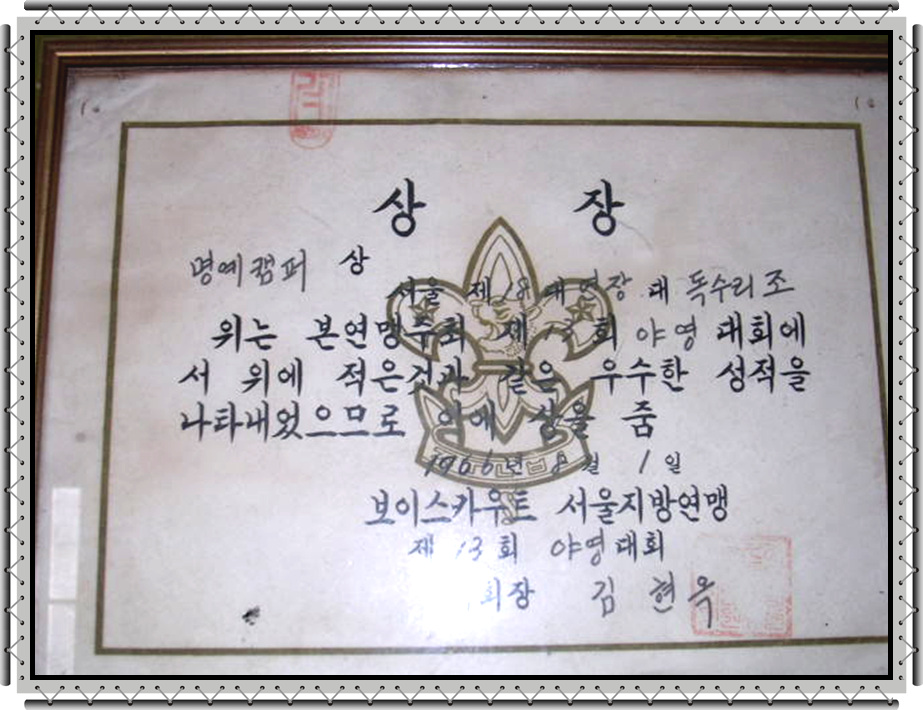 상 장
명예캠퍼 상
서울 제 18 대 연장 대 독수리 조
위는 본연맹주최 제 13 회 야영 대회에
서 위에 적은것과 같은 우수한 성적을
나타내었으므로 이에 상을 줌
1966년 8월 1일
보이스카우트 서울지방연맹
제 13 회 야영대회
회장 김 현 옥